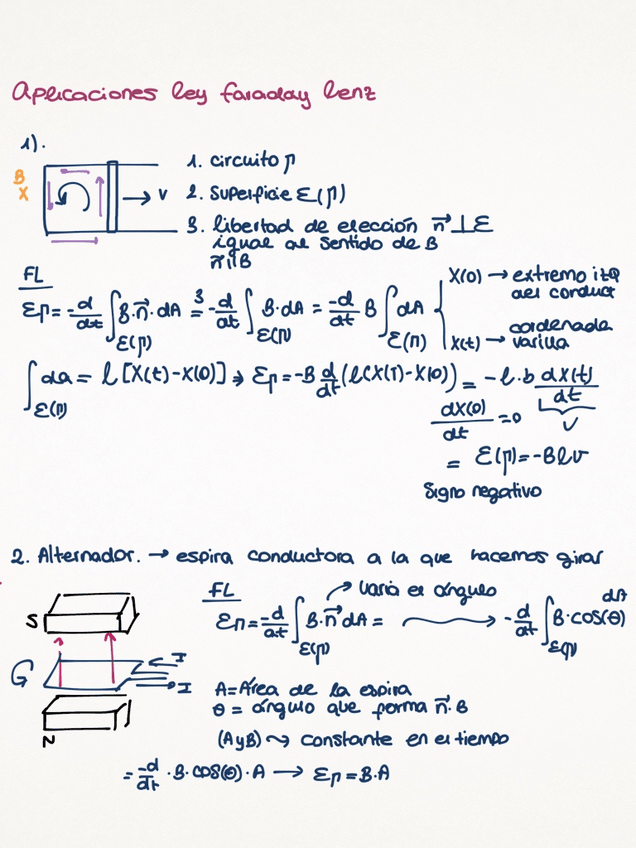 Aplicaciones ley faraday lenz
1).
B
X
V
1. circuito Γ
2. Superficie Σ(Γ)
3. libertad de elección n⃗ ⊥ Σ
igual al sentido de B
n⃗ || B
FL
εΓ = -d/dt ∫Σ(Γ) B·n⃗·dA =³ -d/dt ∫Σ(Γ) B·dA = -d/dt B ∫Σ(Γ) dA
X(0) → extremo izq
del conduct
X(t) → cordenada
varilla
∫Σ(Γ) da = l [X(t)-X(0)] → εΓ = -B d/dt (l(X(T)-X(0)) = -l·b dX(t)/dt
dX(0)/dt = 0
V
= ε(Γ) = -Blv
Signo negativo
2. Alternador. → espira conductora a la que hacemos girar
S
G
I
I
N
FL
Varia el ángulo
εΓ = -d/dt ∫Σ(Γ) B·n⃗ dA = → -d/dt ∫Σ(Γ) B·cos(θ) dA
A = Área de la espira
θ = ángulo que forma n⃗·B
(A y B) ⤳ constante en el tiempo
= -d/dt · B·cos(θ)·A → εΓ = B·A